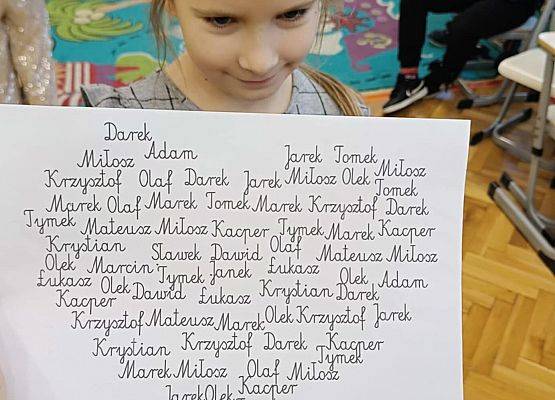 Darek
Miłosz Adam Jarek Tomek
Krzysztof Olaf Darek Jarek Miłosz Olek Miłosz
Marek Olaf Marek Tomek Marek Krzysztof Tomek Darek
Tymek Mateusz Miłosz Kacper Tymek Marek Kacper
Krystian Sławek Dawid Olaf Mateusz Miłosz
Olek Marcin Tymek Janek Łukasz Olek Adam
Łukasz Olek Dawid Łukasz Krystian Darek
Kacper
Krzysztof Mateusz Marek Olek Krzysztof Jarek
Krystian Krzysztof Darek Kacper
Tymek
Marek Miłosz Olaf Miłosz
Jarek Olek Kacper